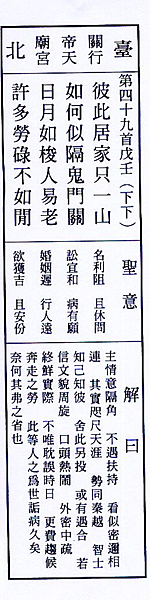 臺北
關行天宮
帝廟
第四十九首戊壬(下下)
彼此居家只一山
如何似隔鬼門關
日月如梭人易老
許多勞碌不如閒
聖意
名利阻 且休問
訟宜和 病有願
婚姻遲 行人遠
欲獲吉 且安份
解曰
主情意隔角 不遇扶持 看似密邇相
連 其實咫尺天涯 勢同秦越 智士
知己知彼 舍此另投 或有遇合 若
信文貌周旋 口頭熱鬧 外密中疏
終鮮實際 不唯耽誤時日 更費趨候
奔走之勞 此等人之為世詬病久矣
奈何其弗之省也